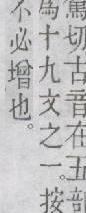 篤切古音在五部
爲十九文之一。按
不必增也。